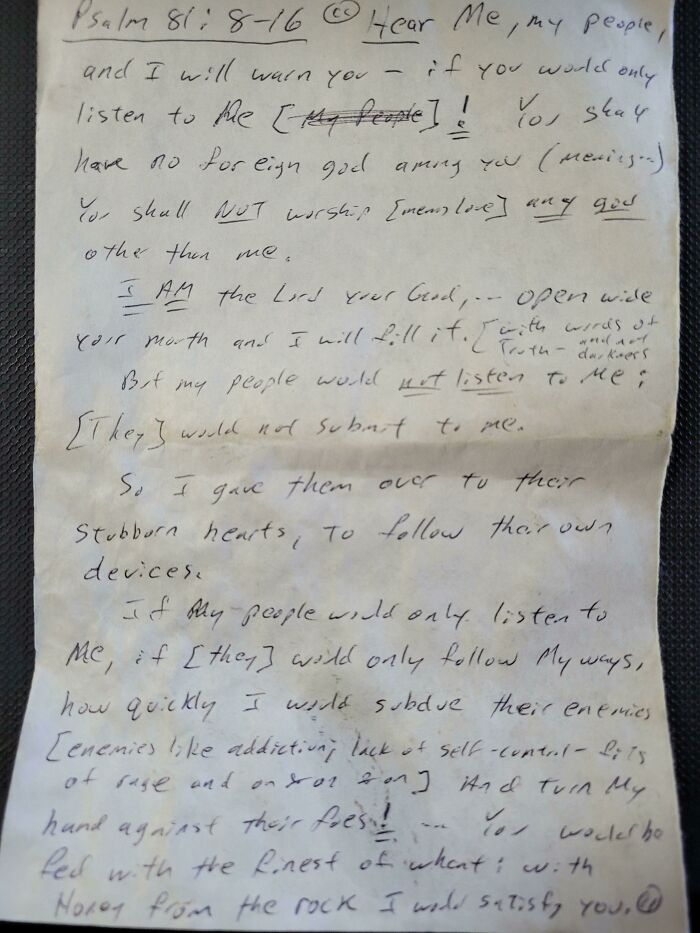 Psalm 81: 8-16 " Hear Me, my people,
and I will warn you – if you would only
listen to Me [My People]! You shall
have no foreign god among you (meaning...)
You shall NOT worship [means love] any god
other than me.
I AM the Lord your God, ... open wide
your mouth and I will fill it. [with words of
Truth – and not
darkness
But my people would not listen to Me;
[They] would not submit to me.
So I gave them over to their
stubborn hearts, to follow their own
devices.
If My people would only listen to
Me, if [they] would only follow My ways,
how quickly I would subdue their enemies
[enemies like addiction; lack of self-control – fits
of rage and on & on & on] And turn My
hand against their foes! ... You would be
fed with the finest of wheat; with
Honey from the rock I would satisfy you. "